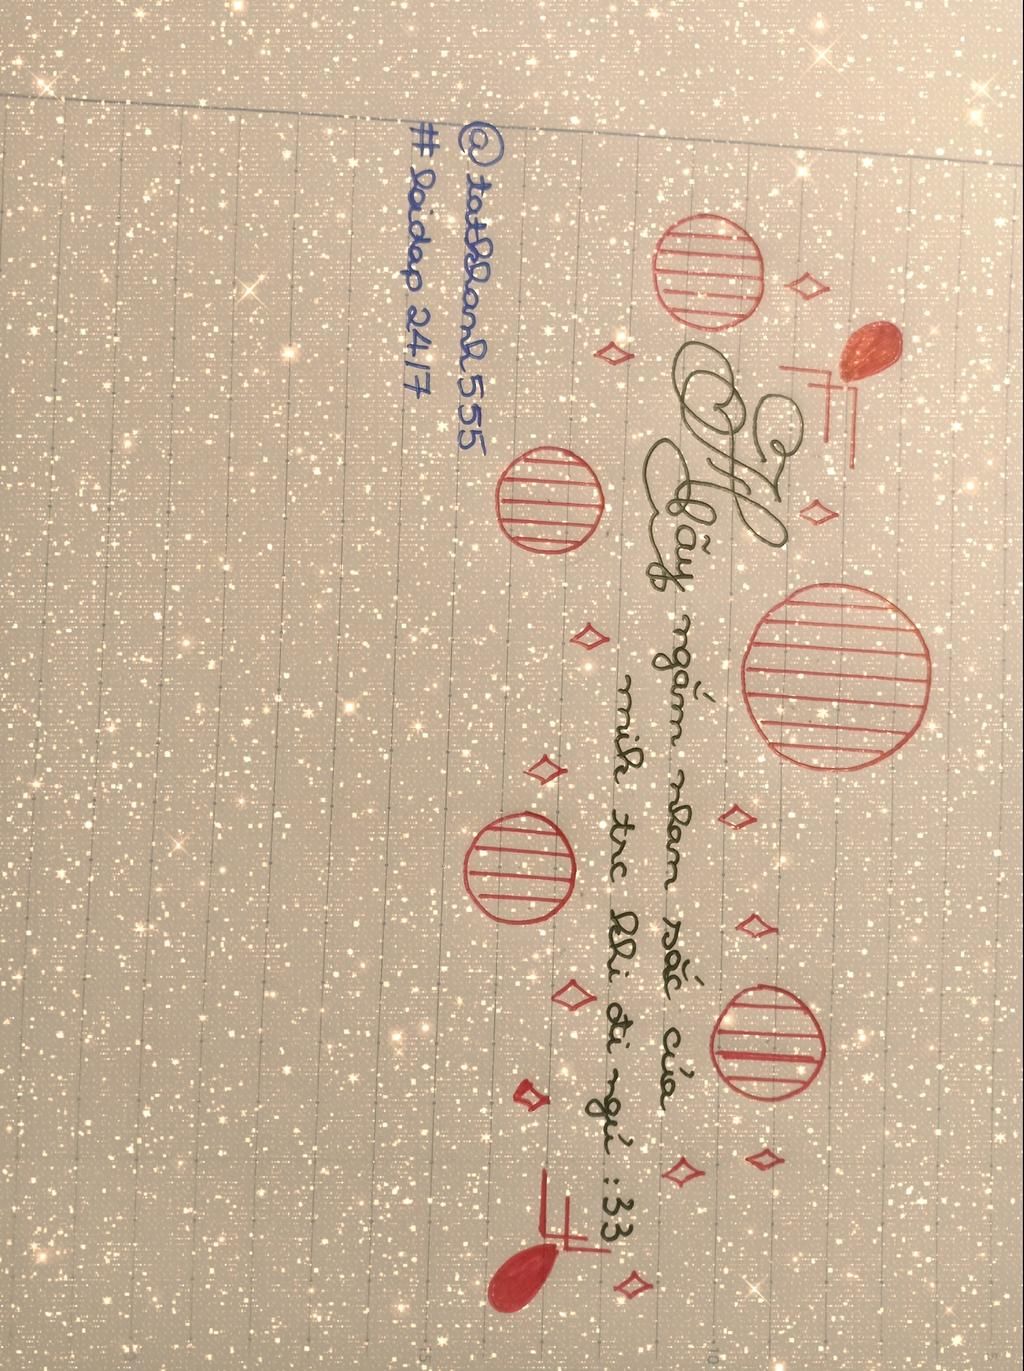 Hãy ngắm nhan sắc của
mik trc khi đi ngủ :33
@tatkhanh555
# hoidap 24/7